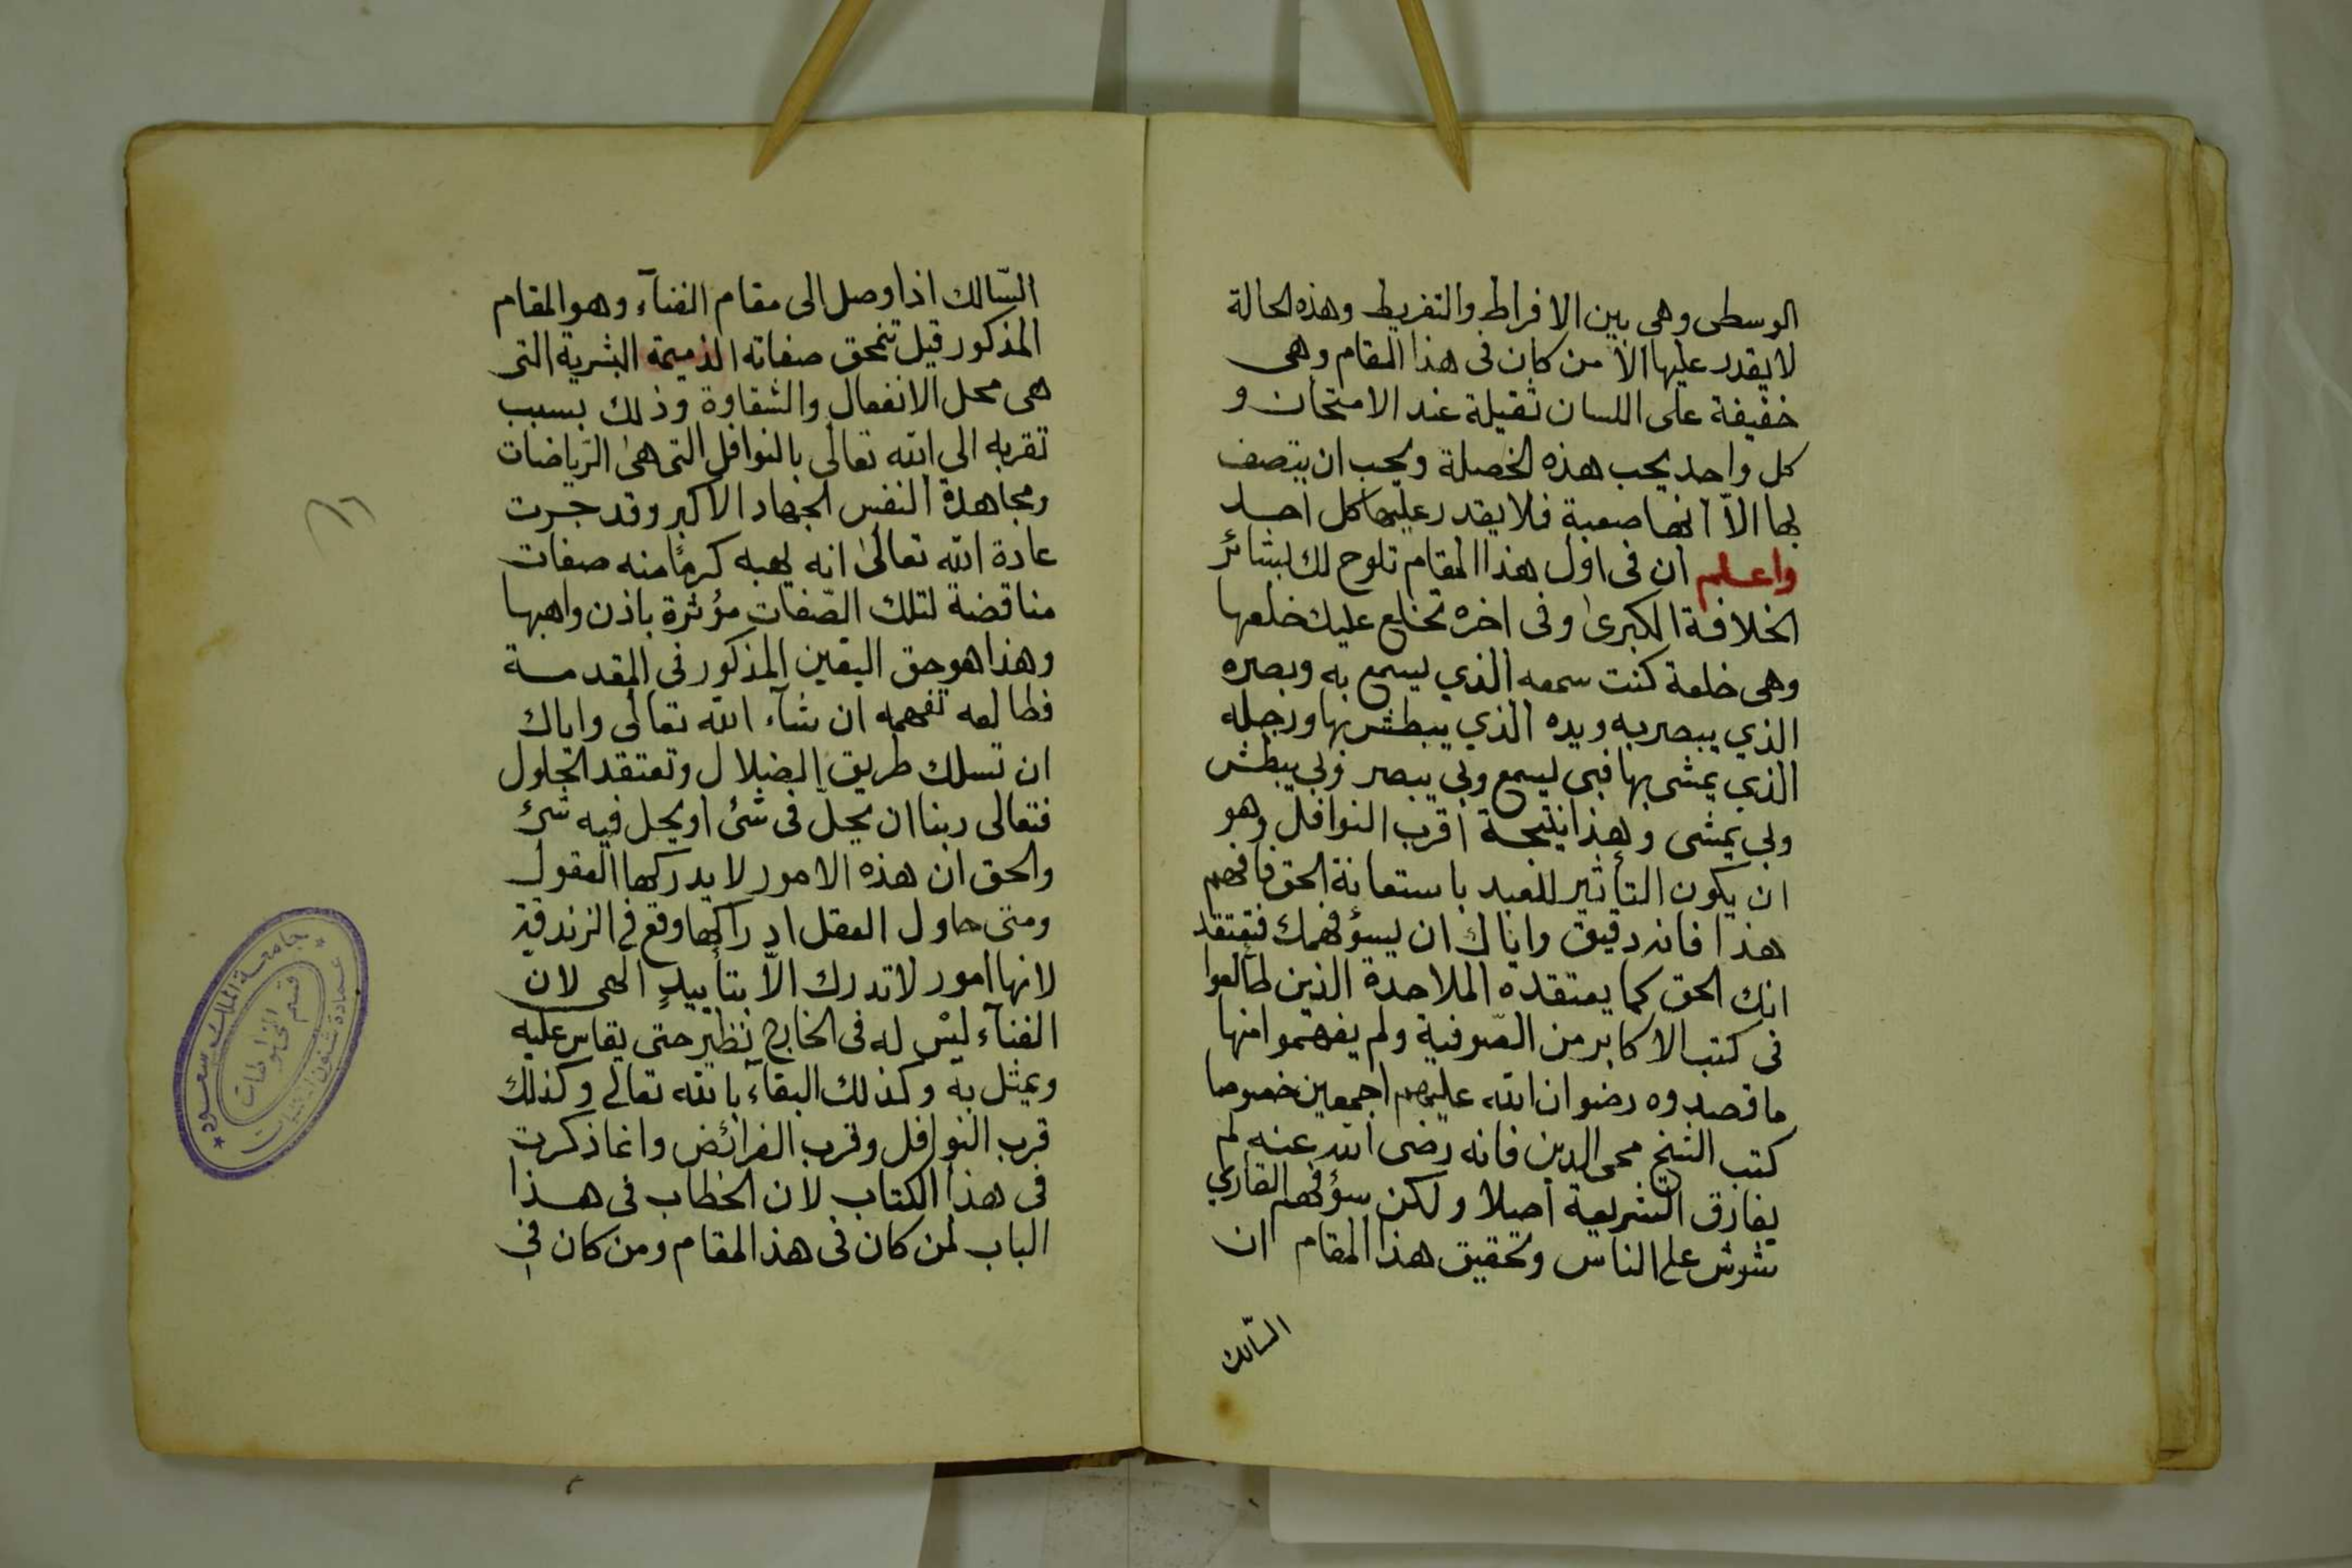 الوسطى وهى بين الافراط والتفريط وهذه الحالة
لا يقدر عليها الا من كان فى هذا المقام وهى
خفيفة على اللسان ثقيلة عند الامتحان و
كل واحد يحب هذه الخصلة ويحب ان يتصف
بها الاّ انها صعبة فلا يقدر عليها كل احد
واعلم ان فى اول هذا المقام تلوح لك بشائر
الخلافة الكبرى وفى اخره تخلع عليك خلعها
وهى خلعة كنت سمعه الذي يسمع به وبصره
الذي يبصر به ويده الذي يبطش بها ورجله
الذي يمشى بها فبى يسمع وبي يبصر وبي يبطش
وبي يمشى وهذا نتيجة اقرب النوافل وهو
ان يكون التأثير للعبد باستعانة الحق فافهم
هذا فانه دقيق واياك ان يسؤ فهمك فتعتقد
انك الحق كما يعتقده الملاحدة الذين طالعوا
فى كتب الاكابر من الصّوفية ولم يفهموا منها
ما قصدوه رضوان الله عليهم اجمعين خصوصا
كتب الشيخ محى الدين فانه رضى الله عنه لم
يفارق الشريعة اصلا ولكن سؤ فهم القاري
شوش على الناس وتحقيق هذا المقام ان
السّالك
السّالك اذا وصل الى مقام الفنآء وهو المقام
المذكور قيل تنمحق صفاته الذميمة البشرية التى
هى محل الانفعال والشقاوة وذلك بسبب
تقربه الي الله تعالى بالنوافل التى هى الرّياضات
ومجاهدة النفس الجهاد الاكبر وقد جرت
عادة الله تعالى انه يهبه كرمًا منه صفات
مناقضة لتلك الصّفات مؤثرة باذن واهبها
وهذا هو حق اليقين المذكور فى المقدمة
فطالعه تفهمه ان شآء الله تعالى واياك
ان تسلك طريق الضلال وتعتقد الحلول
فتعالى ربنا ان يحلّ فى شئ او يحل فيه شئ
والحق ان هذه الامور لا يدركها العقول
ومتى حاول العقل ادراكها وقع في الزندقة
لانها امور لا تدرك الاّ بتأييدٍ الهى لان
الفنآء ليس له فى الخارج نظير حتى يقاس عليه
ويمثل به وكذلك البقآء بالله تعالى وكذلك
قرب النوافل وقرب الفرائض وانما ذكرت
فى هذا الكتاب لان الخطاب فى هذا
الباب لمن كان فى هذا المقام ومن كان في
جامعة الملك سعود
عمادة شئون المكتبات
قسم المخطوطات